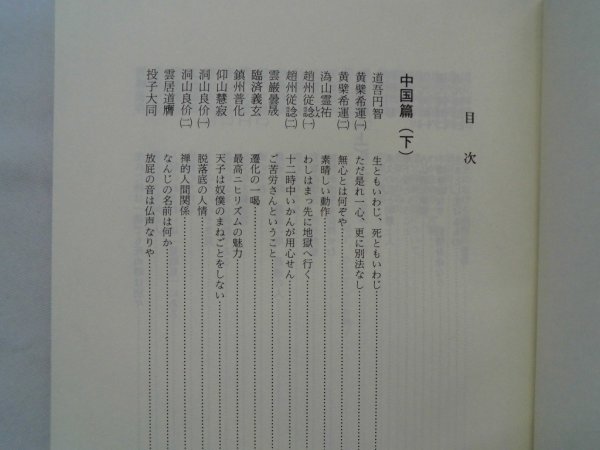 目次
中国篇（下）
道吾円智 生ともいわじ、死ともいわじ
黄檗希運㈠ ただ是れ一心、更に別法なし
黄檗希運㈡ 無心とは何ぞや
潙山霊祐 素晴しい動作
趙州従諗㈠ わしはまっ先に地獄へ行く
趙州従諗㈡ 十二時中いかんが用心せん
雲巌曇晟 ご苦労さんということ
臨済義玄 遷化の一喝
鎮州普化 最高ニヒリズムの魅力
仰山慧寂 天子は奴僕のまねごとをしない
洞山良价㈠ 脱落底の人情
洞山良价㈡ 禅的人間関係
雲居道膺 なんじの名前は何か
投子大同 放屁の音は仏声なりや